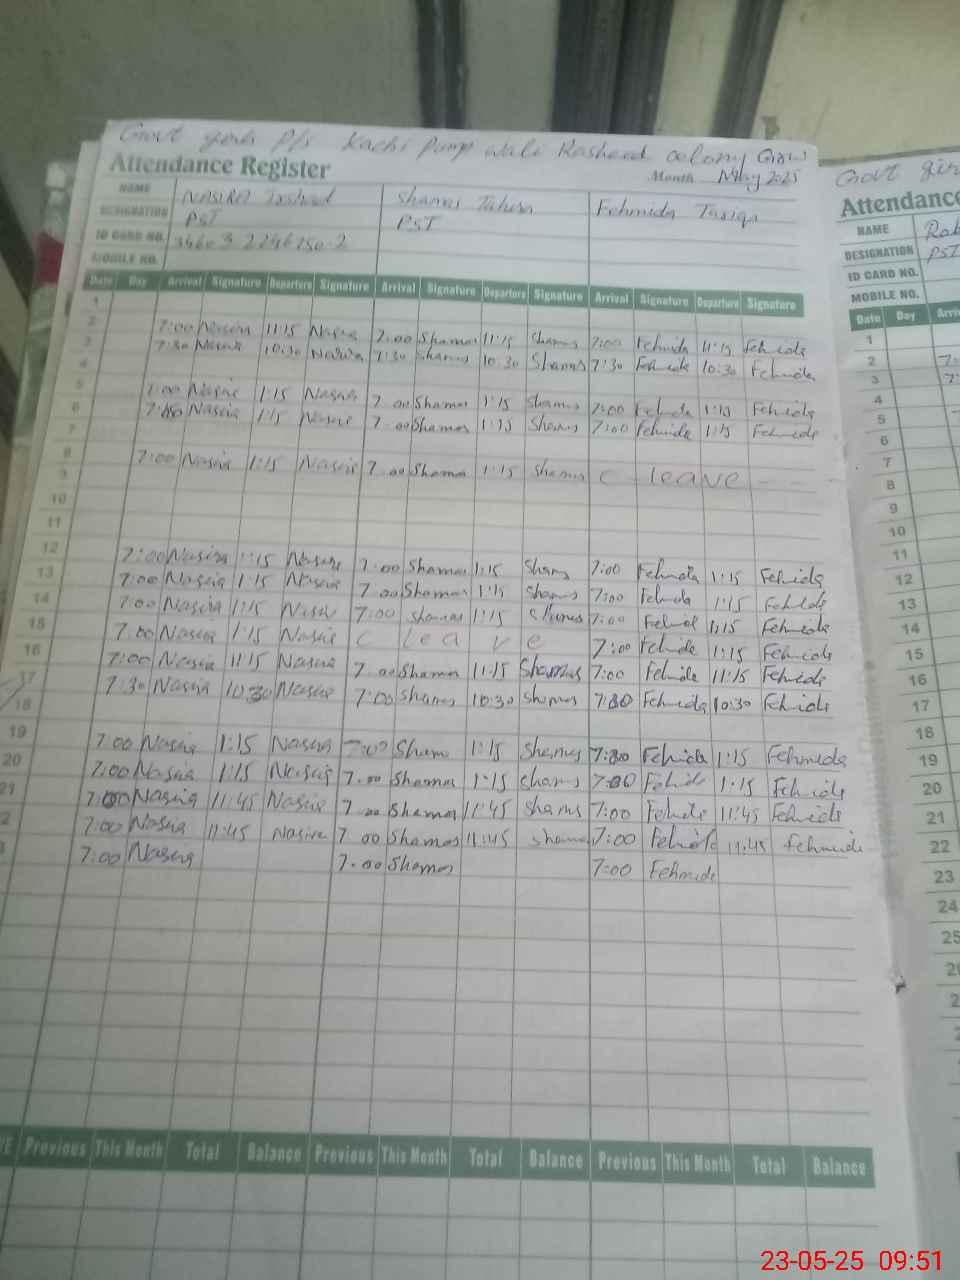 Govt girls P/s Kachi Pump Wali Rasheed colony Grw
Attendance Register
Month May 2025
NAME NASIRA Irshad Shams Tahira Fehmida Tariq
DESIGNATION PST PST
ID CARD NO.
MOBILE NO.
Date Day Arrival Signature Departure Signature Arrival Signature Departure Signature Arrival Signature Departure Signature
1
2 7:00 Nasira 11:15 Nasira 7:00 Shamas 11:15 Shams 7:00 Fehmida 11:15 Fehmida
3 7:30 Nasira 10:30 Nasira 7:30 Shams 10:30 Shams 7:30 Fehmida 10:30 Fehmida
4
5 7:00 Nasira 1:15 Nasira 7.00 Shamas 1:15 Shams 7:00 Fehmida 1:15 Fehmida
6 7:00 Nasira 1:15 Nasira 7.00 Shamas 1:15 Shams 7:00 Fehmida 1:15 Fehmida
7
8 7:00 Nasira 1:15 Nasira 7.00 Shamas 1:15 Shams C leave
9
10
11
12 7:00 Nasira 1:15 Nasira 7:00 Shamas 1:15 Shams 7:00 Fehmida 1:15 Fehmida
13 7:00 Nasira 1:15 Nasira 7.00 Shamas 1:15 Shams 7:00 Fehmida 1:15 Fehmida
14 7:00 Nasira 1:15 Nasira 7:00 Shamas 1:15 Shams 7:00 Fehmida 1:15 Fehmida
15 7:00 Nasira 1:15 Nasira C leave 7:00 Fehmida 1:15 Fehmida
16 7:00 Nasira 11:15 Nasira 7.00 Shamas 11:15 Shamas 7:00 Fehmida 11:15 Fehmida
17 7:30 Nasira 10:30 Nasira 7:00 Shams 10:30 Shams 7:30 Fehmida 10:30 Fehmida
18
19 7:00 Nasira 1:15 Nasira 7:00 Sham 1:15 Shams 7:00 Fehmida 1:15 Fehmida
20 7:00 Nasira 1:15 Nasira 7.00 Shamas 1:15 Shams 7:00 Fehmida 1:15 Fehmida
21 7:00 Nasira 11:45 Nasira 7.00 Shamas 11:45 Shams 7:00 Fehmida 11:45 Fehmida
2 7:00 Nasira 11:45 Nasira 7.00 Shamas 11:45 Shamas 7:00 Fehmida 11:45 Fehmida
7:00 Nasira 7.00 Shamas 7:00 Fehmida
Previous This Month Total Balance Previous This Month Total Balance Previous This Month Total Balance
Govt gir
Attendance
NAME
DESIGNATION PST
ID CARD NO.
MOBILE NO.
Date Day
1
2
3
4
5
6
7
8
9
10
11
12
13
14
15
16
17
18
19
20
21
22
23
24
25
23-05-25 09:51